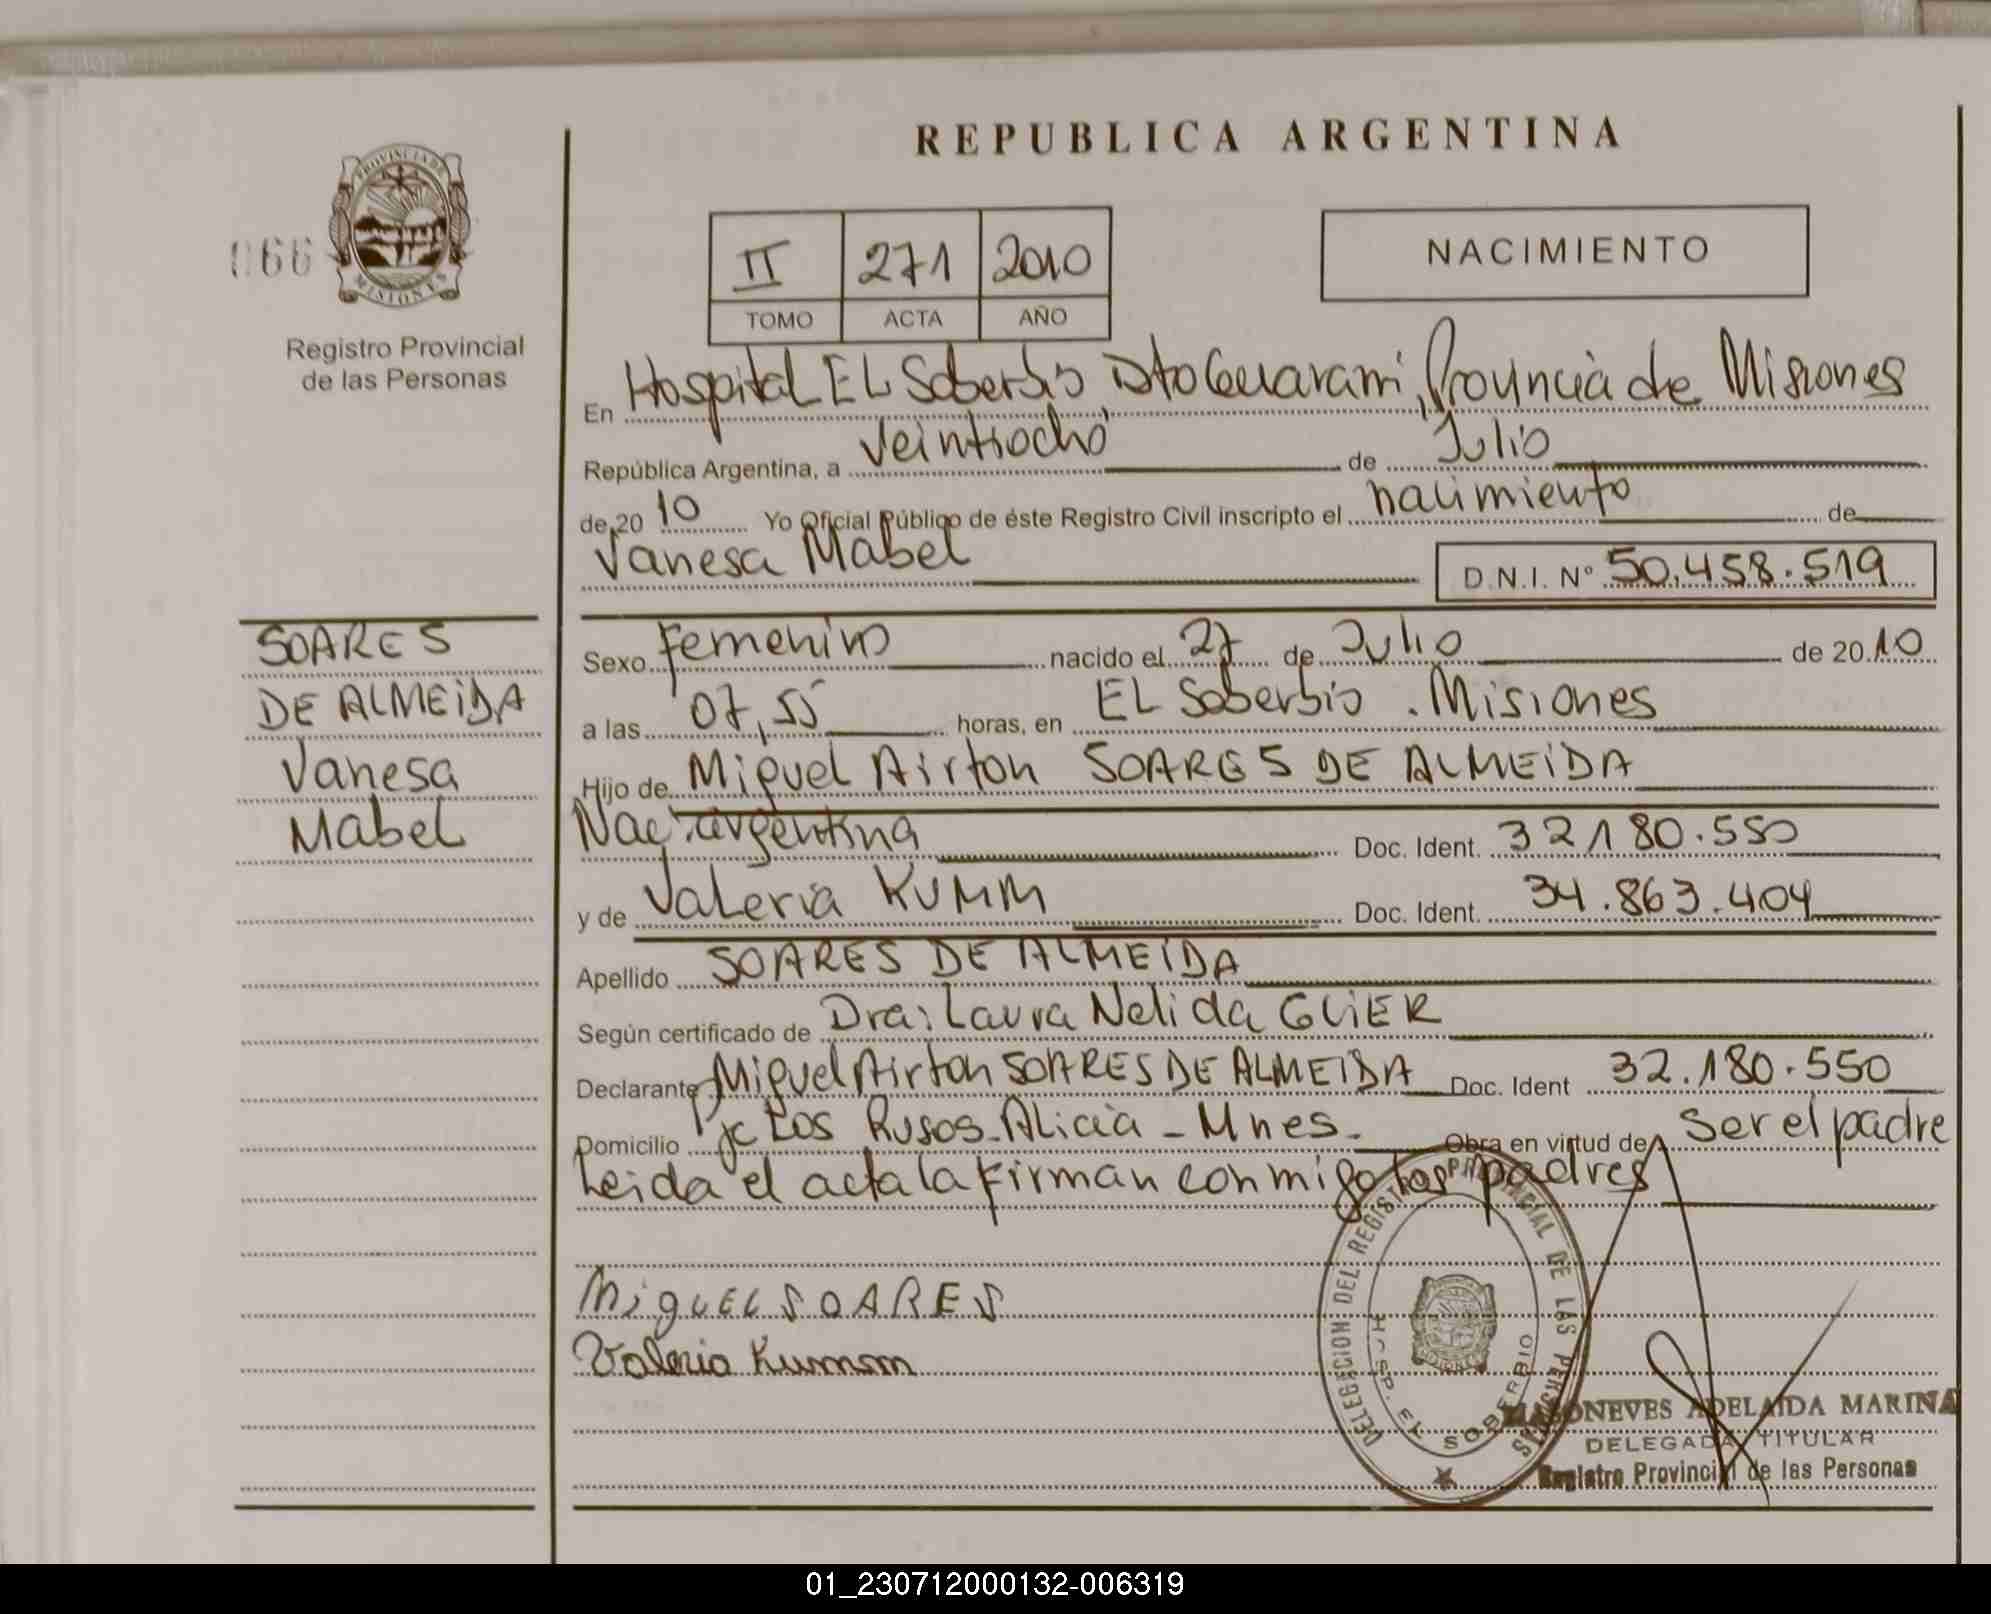 REPUBLICA ARGENTINA
PROVINCIA DE
MISIONES
066
Registro Provincial
de las Personas
II 271 2010
TOMO ACTA AÑO
NACIMIENTO
En Hospital EL Soberbio, Dto Guarani, Provincia de Misiones
República Argentina, a veintiocho de Julio
de 20 10 Yo Oficial Público de éste Registro Civil inscripto el nacimiento de
Vanesa Mabel D.N.I. Nº 50.458.519
SOARES
DE ALMEIDA
Vanesa
Mabel
Sexo Femenino nacido el 27 de Julio de 20 10
a las 07,55 horas, en EL Soberbio. Misiones
Hijo de Miguel Airton SOARES DE ALMEIDA
Nac. argentina Doc. Ident. 32180.550
y de Valeria KUMM Doc. Ident. 34.863.404
Apellido SOARES DE ALMEIDA
Según certificado de Dra: Laura Nelida GLIER
Declarante Miguel Airton SOARES DE ALMEIDA Doc. Ident 32.180.550
Domicilio Pje Los Rusos-Alicia-Mnes- Obra en virtud de ser el padre
Leida el acta la firman conmigo los padres
MiguEL SOARES
Valeria Kumm
DELEGACION DEL REGISTRO PROVINCIAL DE LAS PERSONAS
HOSP. EL SOBERBIO
ADELAIDA MARINA
DELEGADA TITULAR
Registro Provincial de las Personas
01_230712000132-006319